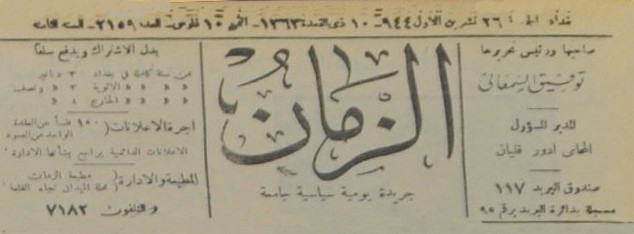 بغداد ٢٦ تشرين الاول ٩٤٤ - ١٠ ذى القعدة ١٣٦٣ - الثمن ١٥ فلوس - العدد ٢١٥٩ - السنة
صاحبها ورئيس تحريرها
توفيق السمعاني
المدير المسؤول
المحامي ادور قليان
صندوق البريد ١١٧
مسجلة بدائرة البريد برقم ٩٥
الزمان
جريدة يومية سياسية جامعة
بدل الاشتراك ويدفع سلفا
عن سنة كاملة في بغداد ٣ دنانير
« « « الالوية ٣ « ونصف
« « « الخارج ٤ «
اجرة الاعلانات ( ١٥٠ فلساً عن العقدة الواحد من العمود
الاعلانات الدائمية يراجع بشأنها الادارة
المطبعة والادارة ( مطبعة الزمان محلة الميدان تجاه القلعة
والتلفون ٧١٨٢